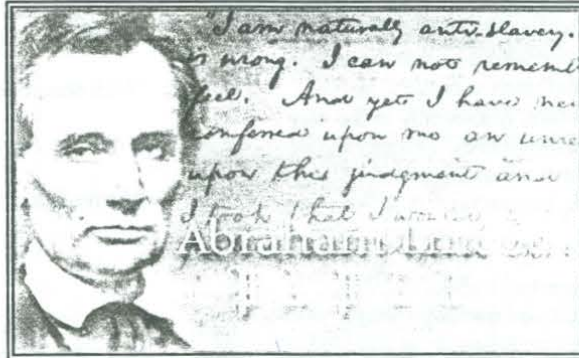 "I am naturally anti-slavery.
is wrong. I can not rememb
feel. And yet I have nev
conferred upon me an unre
upon this judgment and
I took that I would
Abraham Lincoln